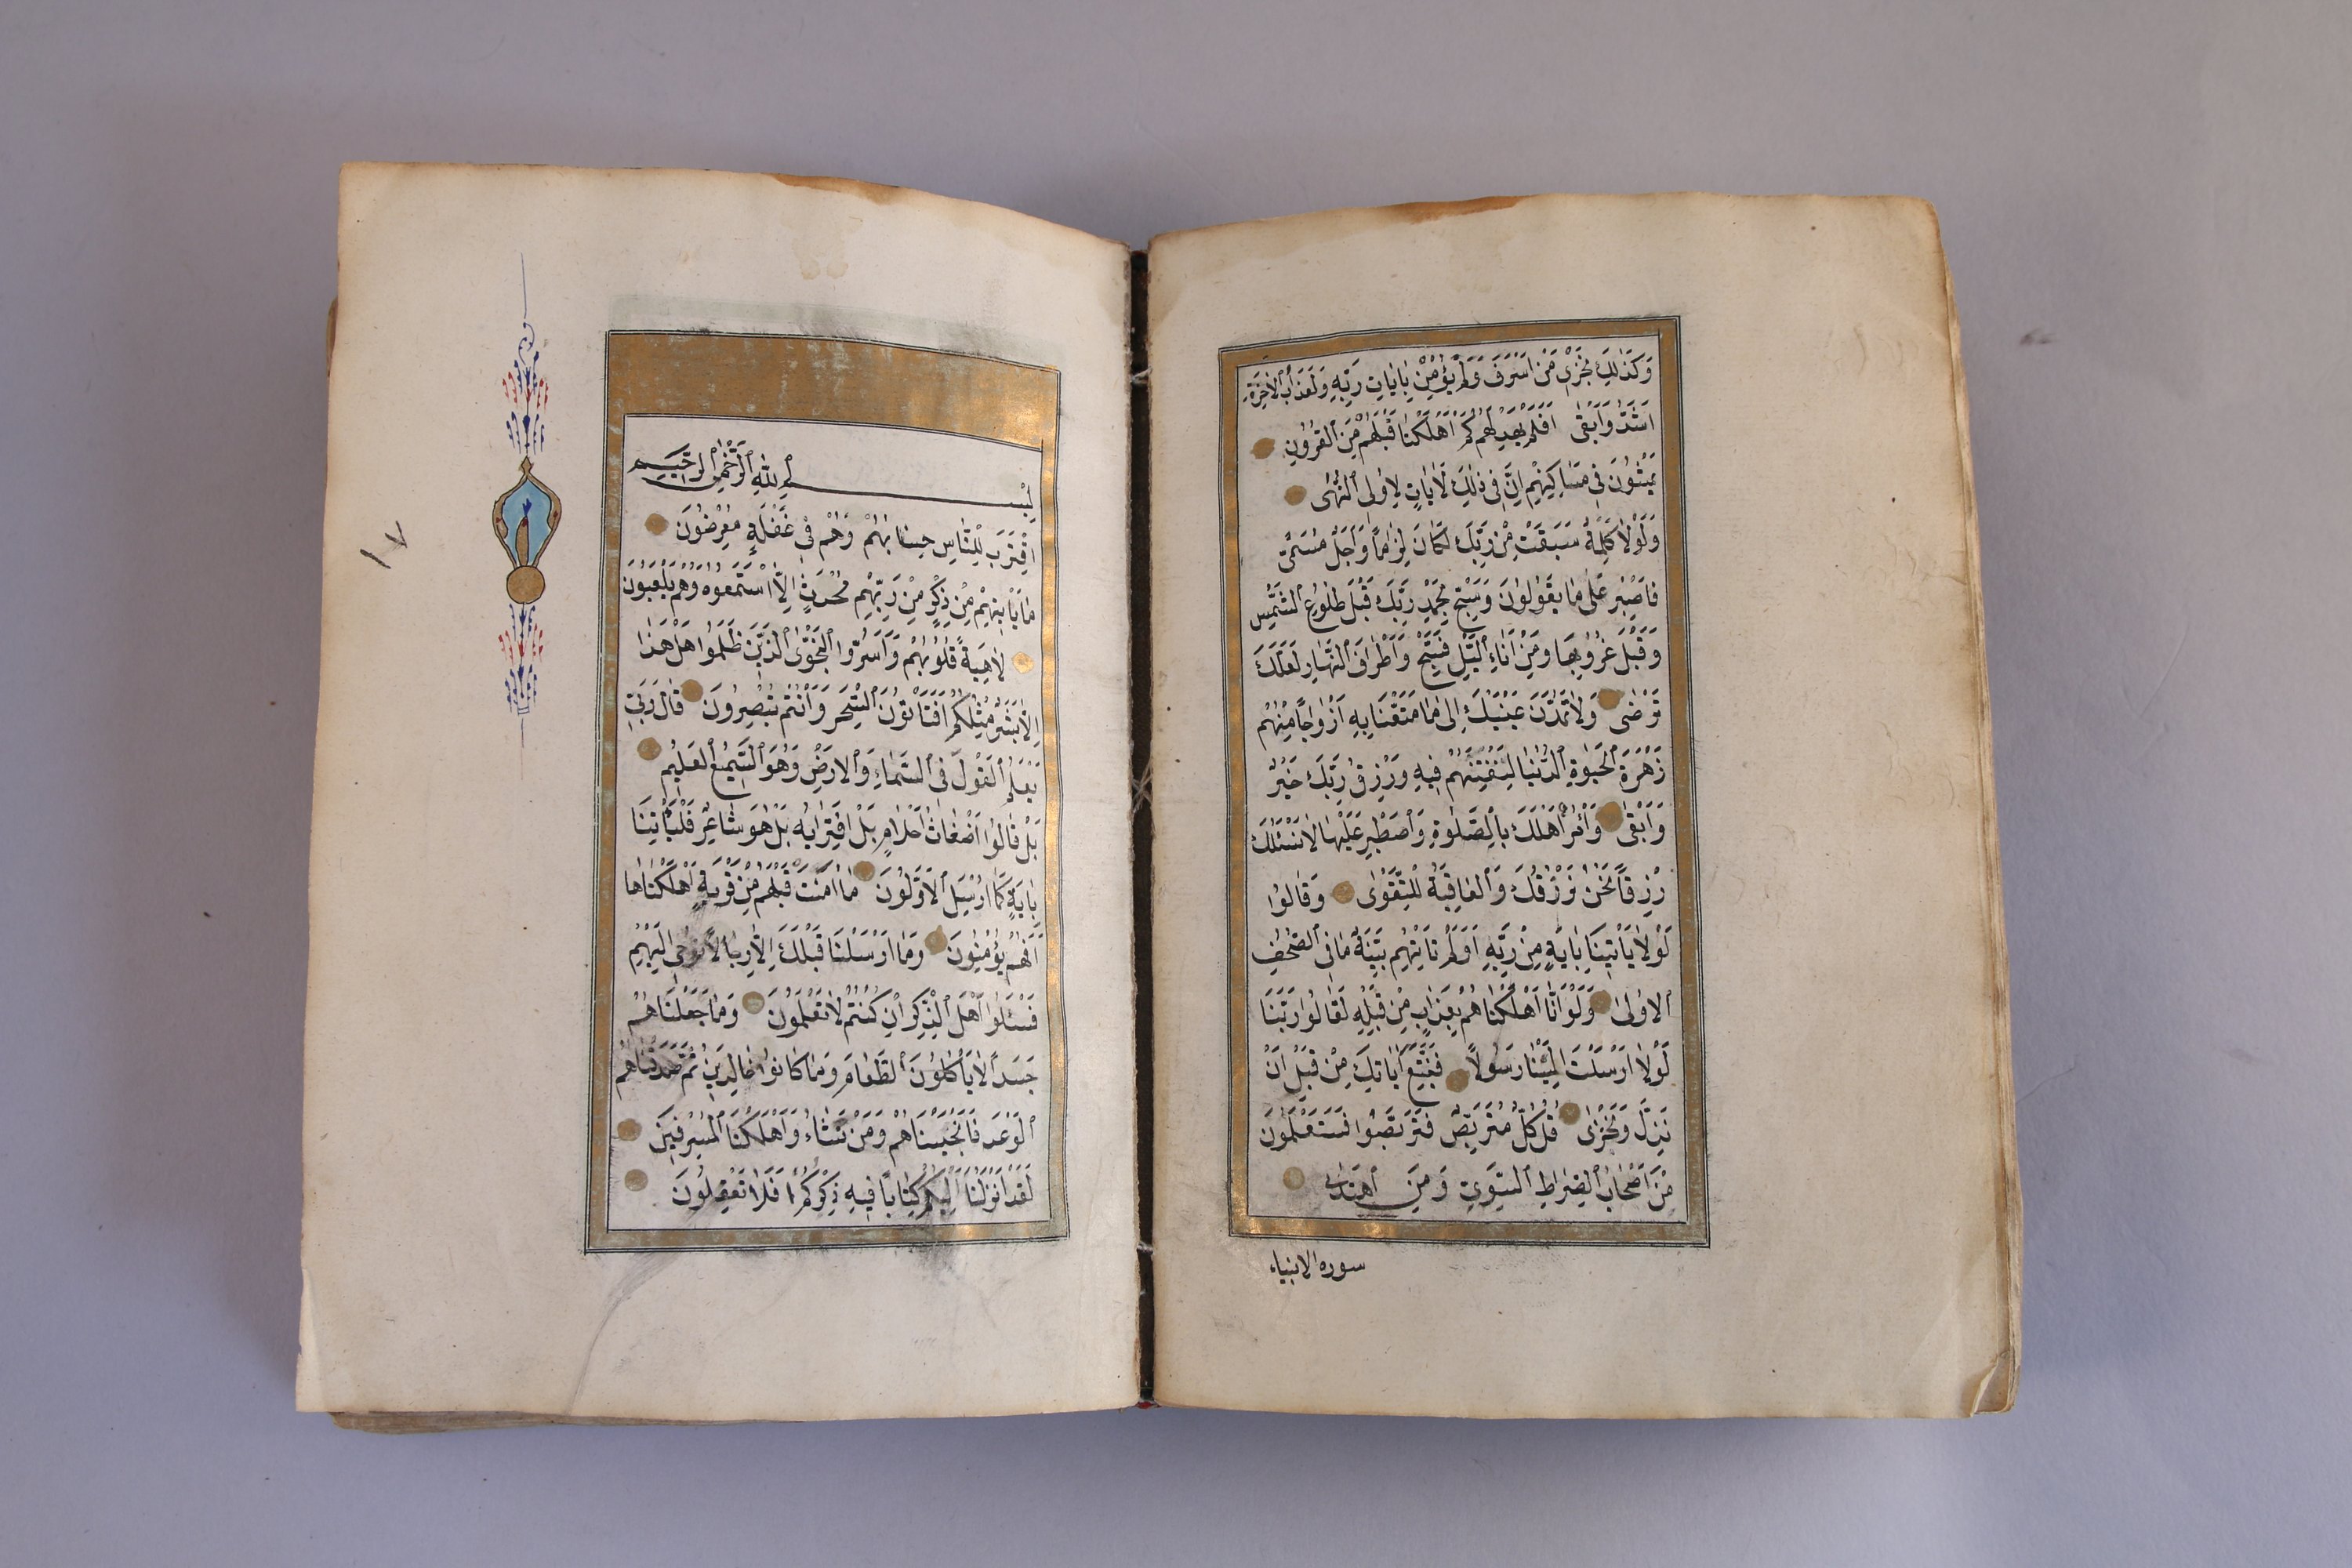 وَكَذٰلِكَ نَجْزٖى مَنْ اَسْرَفَ وَلَمْ يُؤْمِنْ بِاٰيَاتِ رَبِّهٖ وَلَعَذَابُ الْاٰخِرَةِ
اَشَدُّ وَاَبْقٰى اَفَلَمْ يَهْدِ لَهُمْ كَمْ اَهْلَكْنَا قَبْلَهُمْ مِنَ الْقُرُونِ
يَمْشُونَ فٖى مَسَاكِنِهِمْ اِنَّ فٖى ذٰلِكَ لَاٰيَاتٍ لِاُولِى النُّهٰى
وَلَوْلَا كَلِمَةٌ سَبَقَتْ مِنْ رَبِّكَ لَكَانَ لِزَامًا وَاَجَلٌ مُسَمًّى
فَاصْبِرْ عَلٰى مَا يَقُولُونَ وَسَبِّحْ بِحَمْدِ رَبِّكَ قَبْلَ طُلُوعِ الشَّمْسِ
وَقَبْلَ غُرُوبِهَا وَمِنْ اٰنَاءِ الَّيْلِ فَسَبِّحْ وَاَطْرَافَ النَّهَارِ لَعَلَّكَ
تَرْضٰى وَلَا تَمُدَّنَّ عَيْنَيْكَ اِلٰى مَا مَتَّعْنَا بِهٖ اَزْوَاجًا مِنْهُمْ
زَهْرَةَ الْحَيٰوةِ الدُّنْيَا لِنَفْتِنَهُمْ فٖيهِ وَرِزْقُ رَبِّكَ خَيْرٌ
وَاَبْقٰى وَأْمُرْ اَهْلَكَ بِالصَّلٰوةِ وَاصْطَبِرْ عَلَيْهَا لَا نَسْئَلُكَ
رِزْقًا نَحْنُ نَرْزُقُكَ وَالْعَاقِبَةُ لِلتَّقْوٰى وَقَالُوا
لَوْلَا يَأْتٖينَا بِاٰيَةٍ مِنْ رَبِّهٖ اَوَلَمْ تَأْتِهِمْ بَيِّنَةُ مَا فِى الصُّحُفِ
الْاُولٰى وَلَوْ اَنَّا اَهْلَكْنَاهُمْ بِعَذَابٍ مِنْ قَبْلِهٖ لَقَالُوا رَبَّنَا
لَوْلَا اَرْسَلْتَ اِلَيْنَا رَسُولًا فَنَتَّبِعَ اٰيَاتِكَ مِنْ قَبْلِ اَنْ
نَذِلَّ وَنَخْزٰى قُلْ كُلٌّ مُتَرَبِّصٌ فَتَرَبَّصُوا فَسَتَعْلَمُونَ
مَنْ اَصْحَابُ الصِّرَاطِ السَّوِىِّ وَمَنِ اهْتَدٰى
سوره الانبياء
بِسْمِ اللّٰهِ الرَّحْمٰنِ الرَّحٖيمِ
اِقْتَرَبَ لِلنَّاسِ حِسَابُهُمْ وَهُمْ فٖى غَفْلَةٍ مُعْرِضُونَ
مَا يَأْتٖيهِمْ مِنْ ذِكْرٍ مِنْ رَبِّهِمْ مُحْدَثٍ اِلَّا اسْتَمَعُوهُ وَهُمْ يَلْعَبُونَ
لَاهِيَةً قُلُوبُهُمْ وَاَسَرُّوا النَّجْوَى الَّذٖينَ ظَلَمُوا هَلْ هٰذَا
اِلَّا بَشَرٌ مِثْلُكُمْ اَفَتَأْتُونَ السِّحْرَ وَاَنْتُمْ تُبْصِرُونَ قَالَ رَبّٖى
يَعْلَمُ الْقَوْلَ فِى السَّمَاءِ وَالْاَرْضِ وَهُوَ السَّمٖيعُ الْعَلٖيمُ
بَلْ قَالُوا اَضْغَاثُ اَحْلَامٍ بَلِ افْتَرٰيهُ بَلْ هُوَ شَاعِرٌ فَلْيَأْتِنَا
بِاٰيَةٍ كَمَا اُرْسِلَ الْاَوَّلُونَ مَا اٰمَنَتْ قَبْلَهُمْ مِنْ قَرْيَةٍ اَهْلَكْنَاهَا
اَفَهُمْ يُؤْمِنُونَ وَمَا اَرْسَلْنَا قَبْلَكَ اِلَّا رِجَالًا نُوحٖى اِلَيْهِمْ
فَسْئَلُوا اَهْلَ الذِّكْرِ اِنْ كُنْتُمْ لَا تَعْلَمُونَ وَمَا جَعَلْنَاهُمْ
جَسَدًا لَا يَأْكُلُونَ الطَّعَامَ وَمَا كَانُوا خَالِدٖينَ ثُمَّ صَدَقْنَاهُمُ
الْوَعْدَ فَاَنْجَيْنَاهُمْ وَمَنْ نَشَاءُ وَاَهْلَكْنَا الْمُسْرِفٖينَ
لَقَدْ اَنْزَلْنَا اِلَيْكُمْ كِتَابًا فٖيهِ ذِكْرُكُمْ اَفَلَا تَعْقِلُونَ
١٧